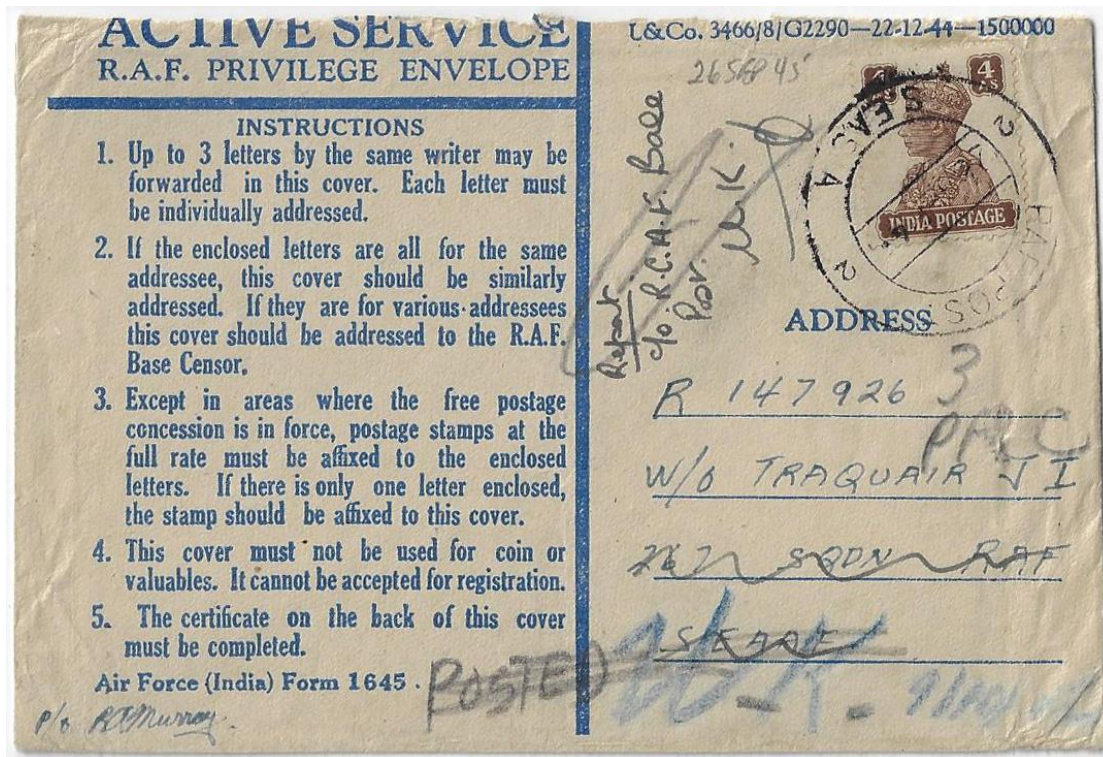 ACTIVE SERVICE
R.A.F. PRIVILEGE ENVELOPE
INSTRUCTIONS
1. Up to 3 letters by the same writer may be
forwarded in this cover. Each letter must
be individually addressed.
2. If the enclosed letters are all for the same
addressee, this cover should be similarly
addressed. If they are for various addressees
this cover should be addressed to the R.A.F.
Base Censor.
3. Except in areas where the free postage
concession is in force, postage stamps at the
full rate must be affixed to the enclosed
letters. If there is only one letter enclosed,
the stamp should be affixed to this cover.
4. This cover must not be used for coin or
valuables. It cannot be accepted for registration.
5. The certificate on the back of this cover
must be completed.
Air Force (India) Form 1645.
P/O
Murray.
L&Co. 3466/8/G2290—22-12-44—1500000
26 SEP 45
4 AS
INDIA POSTAGE
2 RAF POST
SEASIA 2
Repat.
c/o. R.C.A.F. Base
U.K.
ADDRESS
R 147926
3
W/O TRAQUAIR J I
267 SQDN RAF
POSTED
U-K